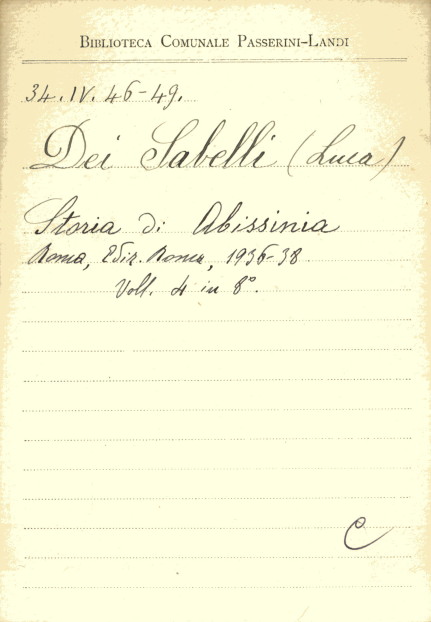 BIBLIOTECA COMUNALE PASSERINI-LANDI
34.IV. 46-49.
Dei Sabelli (Luca)
Storia di Abissinia
Roma, Ediz. Roma, 1936-38
Voll. 4 in 8°.
C